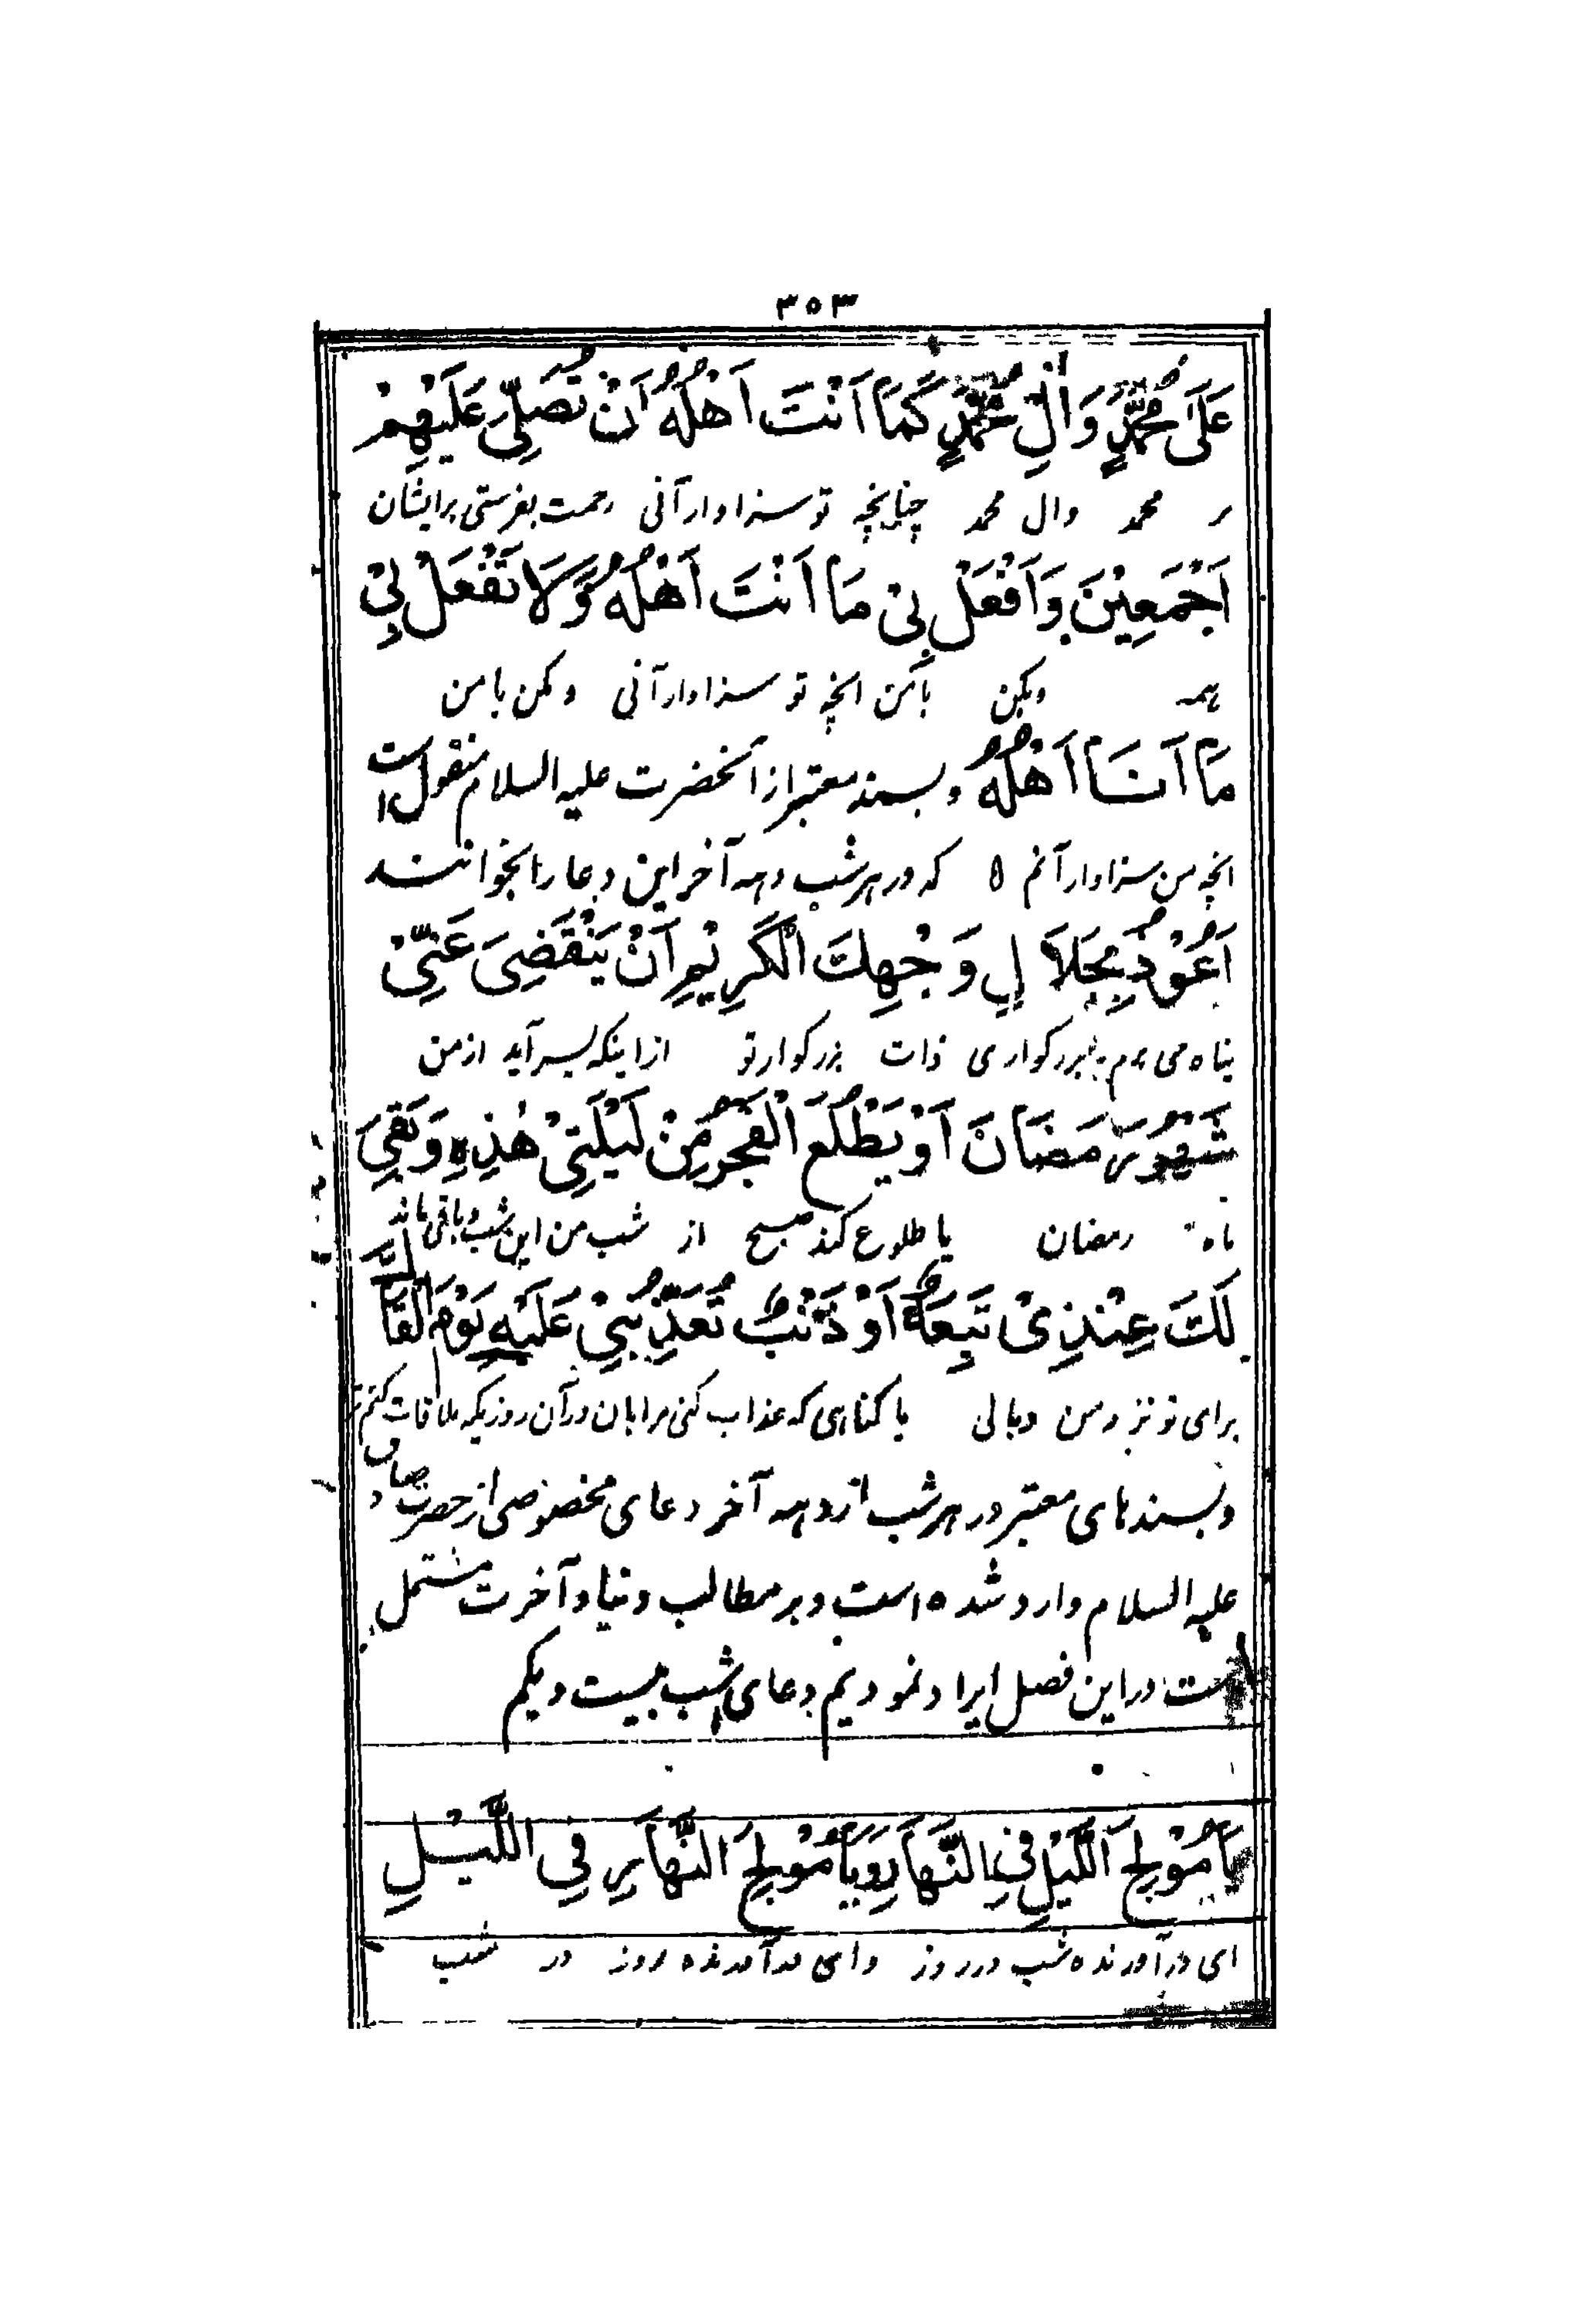 ۳۵۳
عَلَىٰ مُحَمَّدٍ وَاٰلِ مُحَمَّدٍ كَمَا اَنْتَ اَهْلُهُ اَنْ تُصَلِّيَ عَلَيْهِمْ
بر محمد وال محمد چنانچه تو سزاوار آنی رحمت بفرستی برایشان
اَجْمَعِيْنَ وَافْعَلْ بِيْ مَا اَنْتَ اَهْلُهُ وَلَا تَفْعَلْ بِيْ
همه وبکن بامن انچه تو سزاوار آنی ومکن بامن
مَا اَنَا اَهْلُهُ وبسند معتبر از آنحضرت علیه السلام منقول است
انچه من سزاوار آنم ۵ که در هر شب دهه آخر این دعا را بخوانند
اَعُوْذُ بِجَلَالِ وَجْهِكَ الْكَرِيْمِ اَنْ يَنْقَضِيَ عَنِّيْ
پناه می برم به بزرکواری ذات بزرکوار تو از اینکه بسر آید از من
شَهْرُ رَمَضَانَ اَوْ يَطْلُعَ الْفَجْرُ مِنْ لَيْلَتِيْ هٰذِهِ وَبَقِيَ
ماه رمضان یا طلوع کند صبح از شب من این شب وباقی ماند
لَكَ عِنْدِيْ تَبِعَةٌ اَوْ ذَنْبٌ تُعَذِّبُنِيْ عَلَيْهِ يَوْمَ اَلْقَاكَ
برای تو نزد من وبالی یا کناهی که عذاب کنی مرا بان در آن روزیکه ملاقات کنم ترا
وبسندهای معتبر در هر شب از دهه آخر دعای مخصوصی از حضرت صادق
علیه السلام وارد شده است وبر مطالب دنیا وآخرت مشتمل
است در این فصل ایراد نمودیم دعای شب بیست ویکم
يَا مُوْلِجَ اللَّيْلِ فِي النَّهَارِ وَيَا مُوْلِجَ النَّهَارِ فِي اللَّيْلِ
ای در آورنده شب در روز وای در آورنده روز در شب